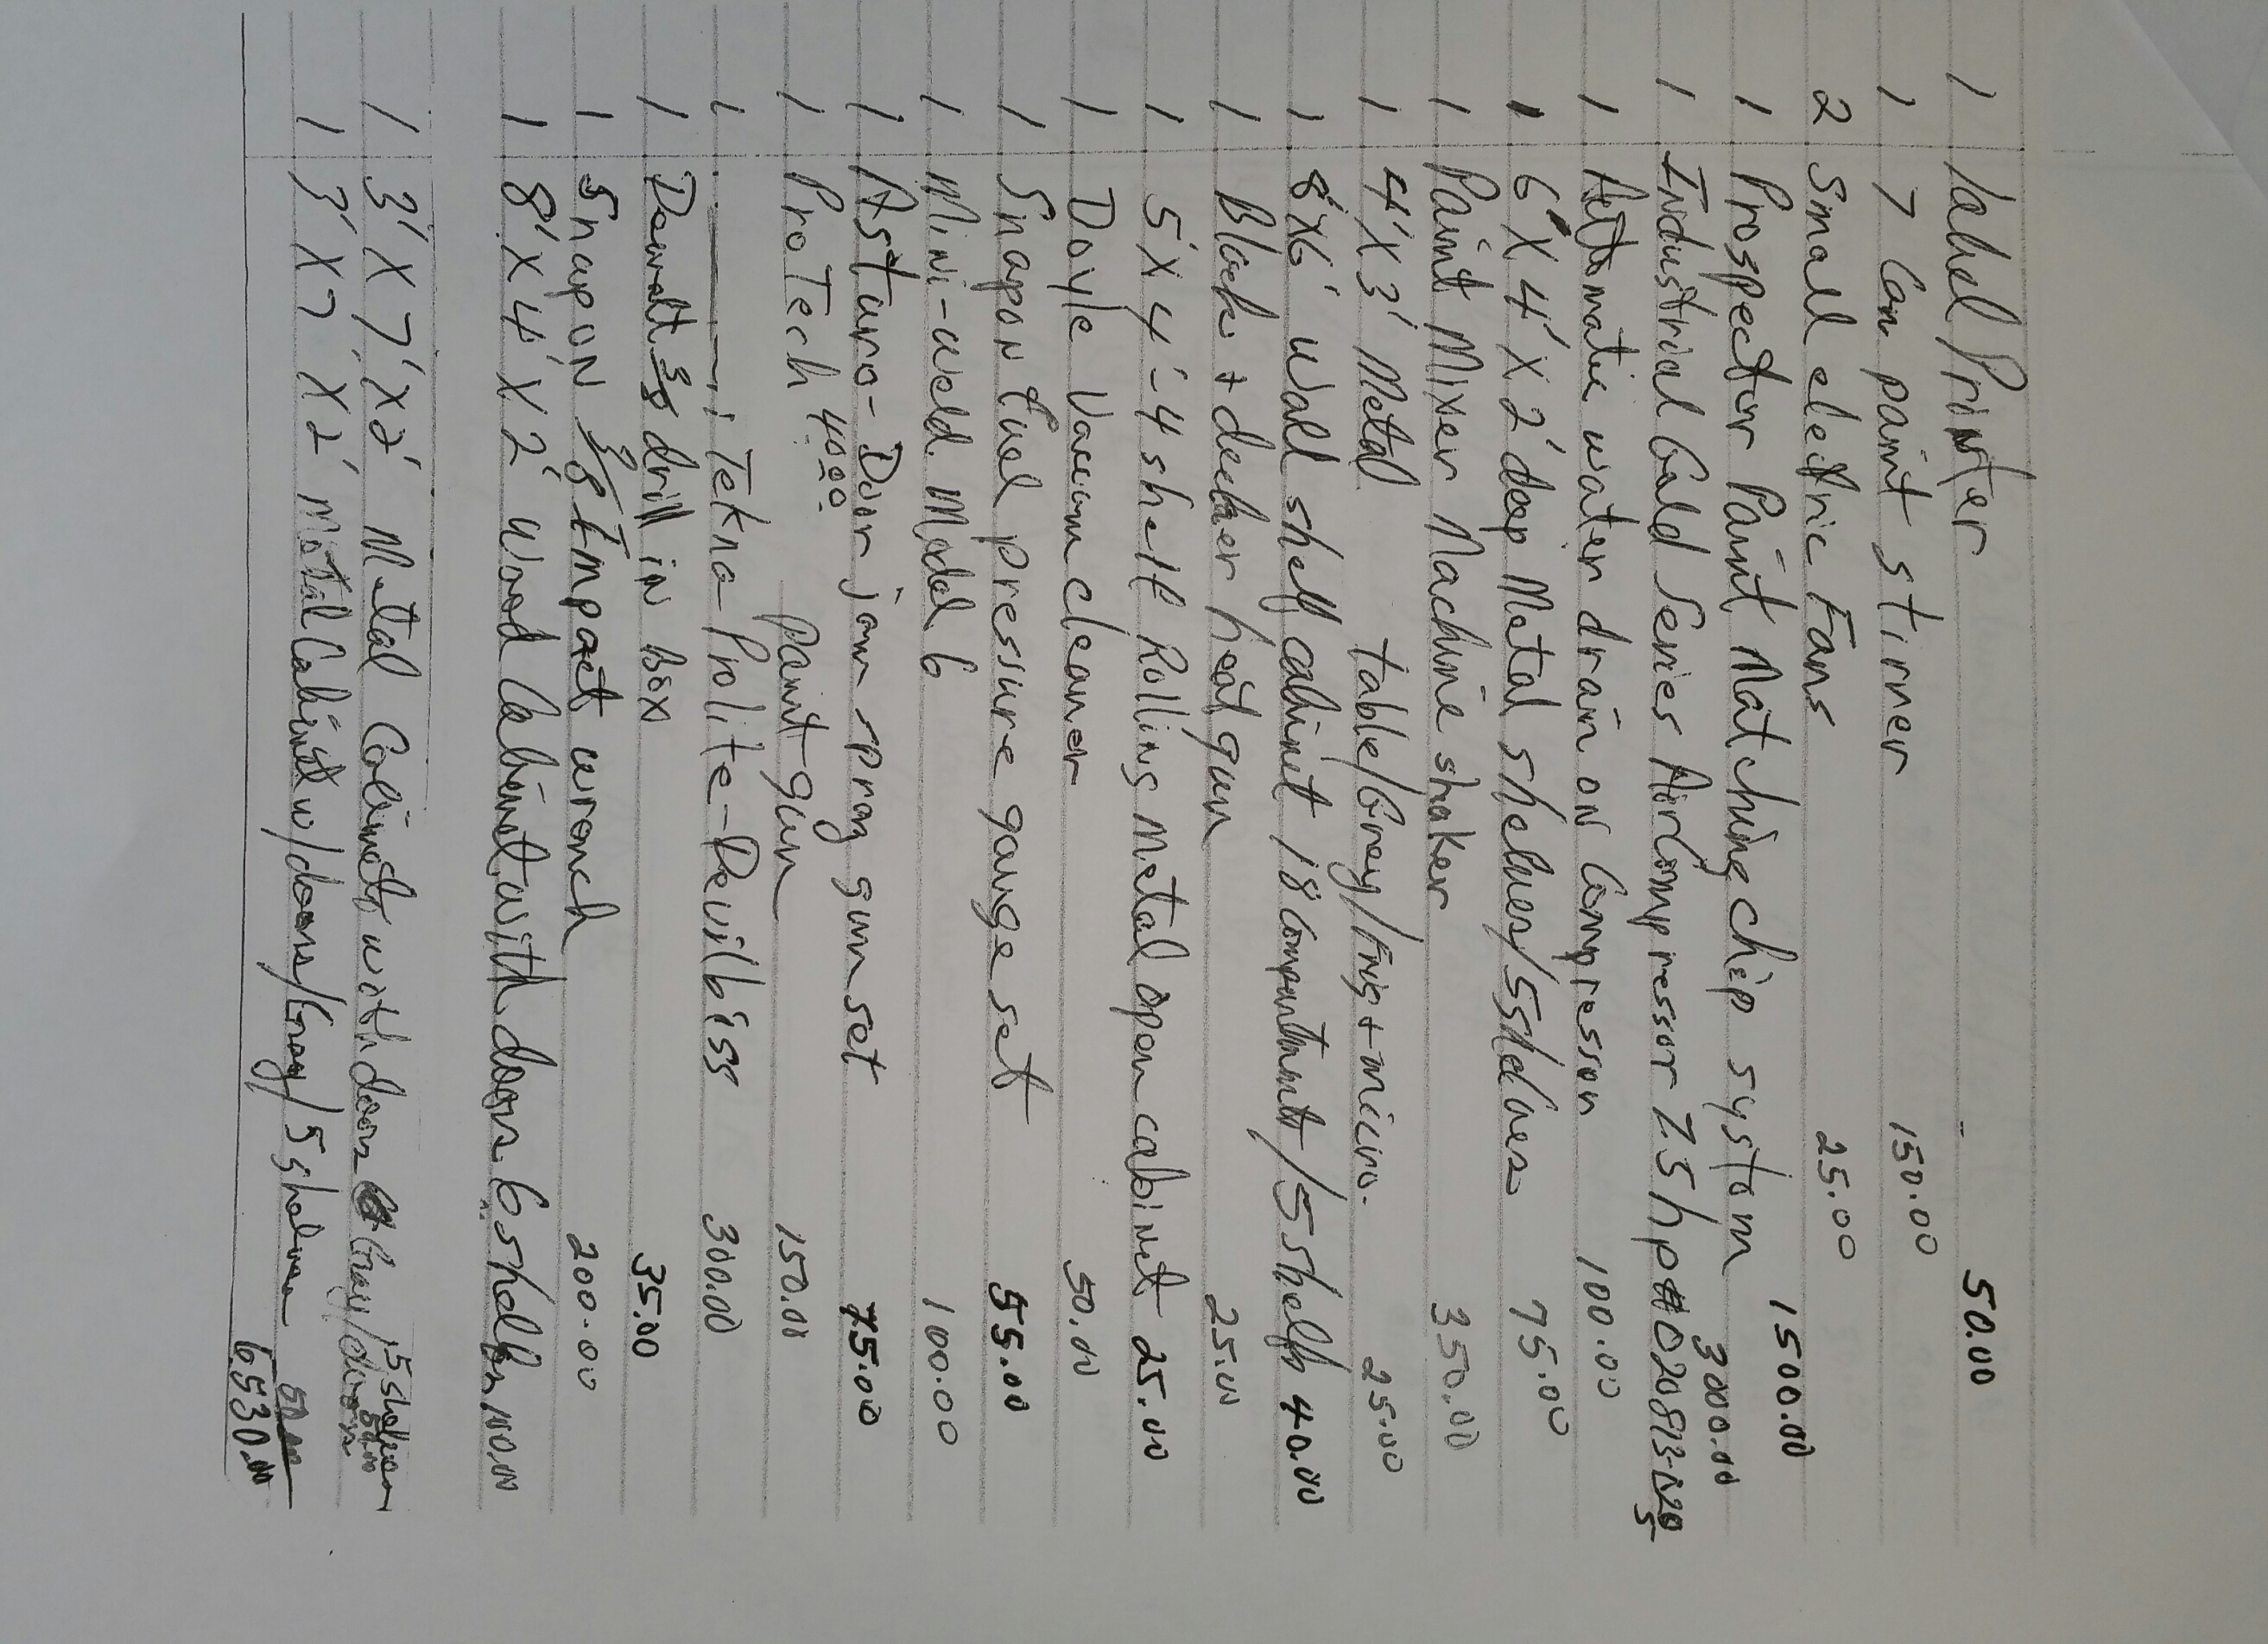 1 label/Printer 50.00
1 7 Can paint stirrer 150.00
2 Small electric Fans 25.00
1 Prospector Paint Matching chip system 1500.00
3000.00
1 Industrial Gold Series Air Compressor 7.5 hp
1 Automatic water drain on Compressor 100.00
1 6' X 4' X 2' deep Metal shelves/5 shelves 75.00
1 Paint Mixer Machine shaker 350.00
1 4' X 3' Metal table/Grey/Frig + micro. 25.00
1 8' X 6' wall shelf cabinet 18 Compartment/5 shelfs 40.00
1 Black + decker heat gun 25.00
1 5' X 4' - 4 shelf Rolling metal open cabinet 25.00
1 Doyle Vacuum cleaner 50.00
1 Snapon fuel pressure gauge set 55.00
1 Mini-weld Model 6 100.00
1 Asturo - Door jam spray gun set 75.00
1 ProTech 4000 Paint gun 150.00
1 Tekna Prolite - Devilbiss 300.00
1 Dewalt 3/8 drill in box 35.00
1 SnapoN 3/8 Impact wrench 200.00
1 8' X 4' X 2' Wood Cabinet with doors 6 shelfs 100.00
1 3' X 7' X 2' Metal Cabinet with doors Gray/doors 5 shelves 50.00
1 3' X 7' X 2' Metal Cabinet w/doors/Gray/5 shelves 50.00
6530.00